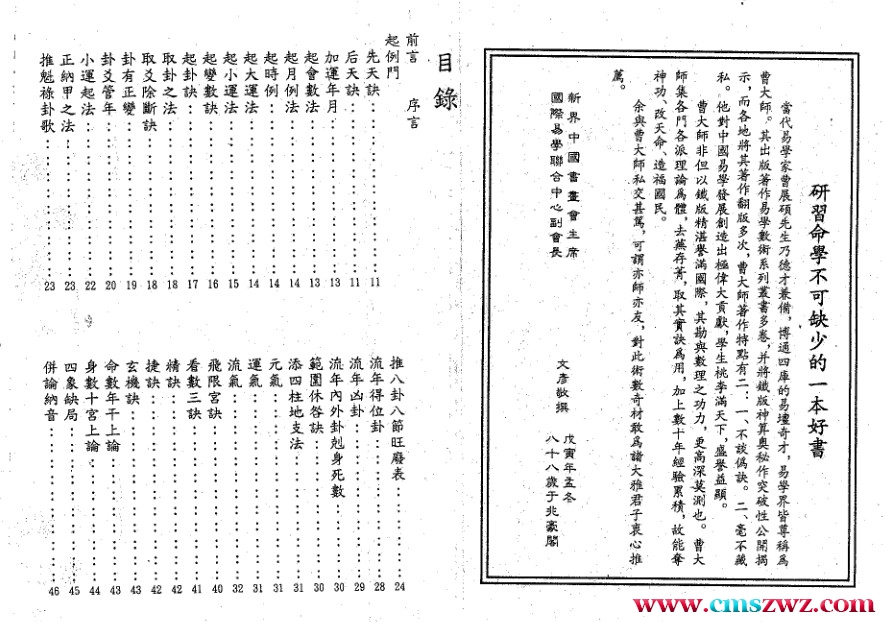 研習命學不可缺少的一本好書
當代易學家曹展碩先生乃德才兼備，博通四庫的易壇奇才，易學界皆尊稱為
曹大師。其出版著作易學數術系列叢書多卷，并將鐵版神算奧秘作突破性公開揭
示，而各地將其著作翻版多次，曹大師著作特點有二：一、不談偽訣。二、毫不藏
私。他對中國易學發展創造出極偉大貢獻，學生桃李滿天下，盛譽益顯。
曹大師非但以鐵版精湛譽滿國際，其勘與數理之功力，更高深莫測也。曹大
師集各門各派理論為體，去蕪存菁，取其實訣為用，加上數十年經驗累積，故能奪
神功、改天命、造福國民。
余與曹大師私交甚篤，可謂亦師亦友，對此術數奇材敢為諸大雅君子衷心推
薦。
新界中國書畫會主席
國際易學聯合中心副會長
文彥敬撰
戊寅年孟冬
八十八歲于兆豪閣
目錄
前言 序言
起例門
先天訣 11
后天訣 11
加運年月 13
起會數法 13
起月例法 14
起時例 14
起大運法 15
起小運法 15
起變數訣 16
起卦訣 17
取卦之法 18
取爻除斷訣 18
卦有正變 19
卦爻管年 20
小運起法 22
正納甲之法 23
推魁祿卦歌 23
推八卦八節旺廢表 24
流年得位卦 28
流年凶卦 29
流年內外卦剋身死數 30
範圍休咎訣 30
添四柱地支法 31
元氣 31
運氣 31
流氣 32
飛限宮訣 40
看數三訣 41
精訣 42
捷訣 42
玄機訣 43
命數年干上論 43
身數十宮上論 44
四象缺局 45
併論納音 46
www.cmszwz.com